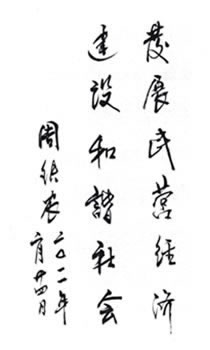 發展民营经济
建设和谐社会
周
二〇一一年
月廿四日